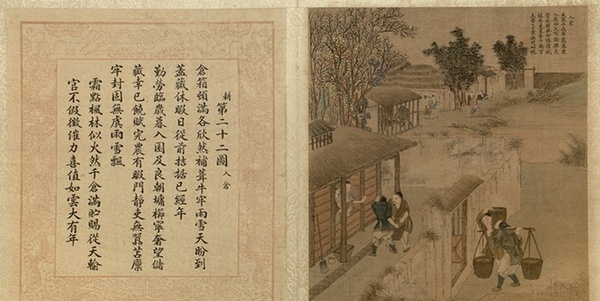 耕 第二十二圖 入倉
倉箱頓滿各欣然補葺牛牢雨雪天盼到
蓋藏休暇日從前拮据已經年
勤勞臨歲暮入囷及良朝墉櫛寧奢望儲
藏幸已饒賦完農有暇門靜吏無囂苫廩
牢封固無虞雨雪飄
霜點楓林似火然千倉滿貯賜從天輸
官不假徵催力喜值如雲大有年
入倉